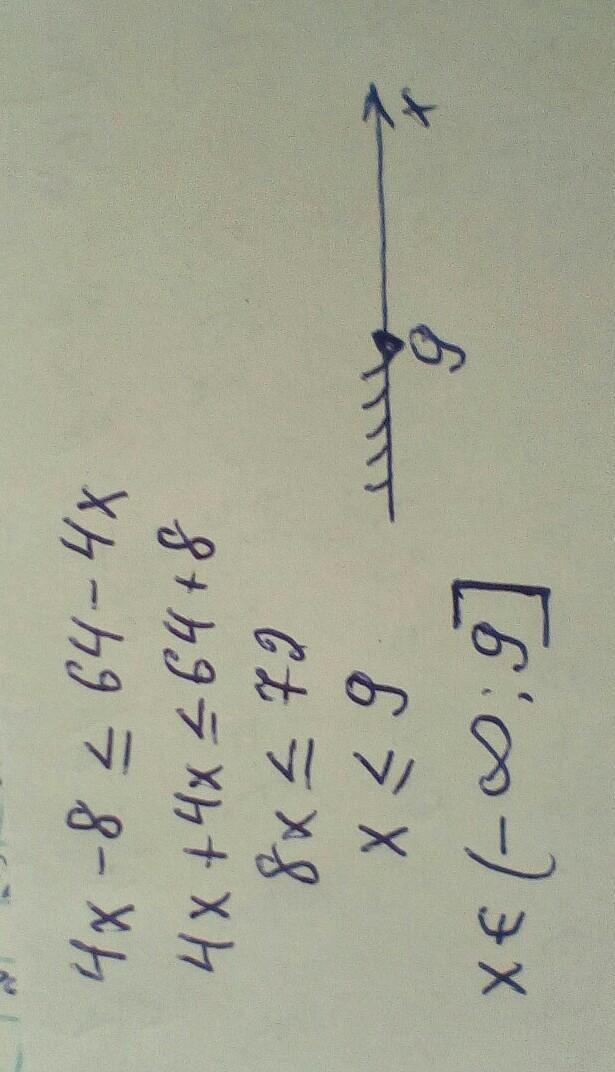 4x - 8 ≤ 64 - 4x
4x + 4x ≤ 64 + 8
8x ≤ 72
x ≤ 9
9
x
x ∈ (- ∞; 9]